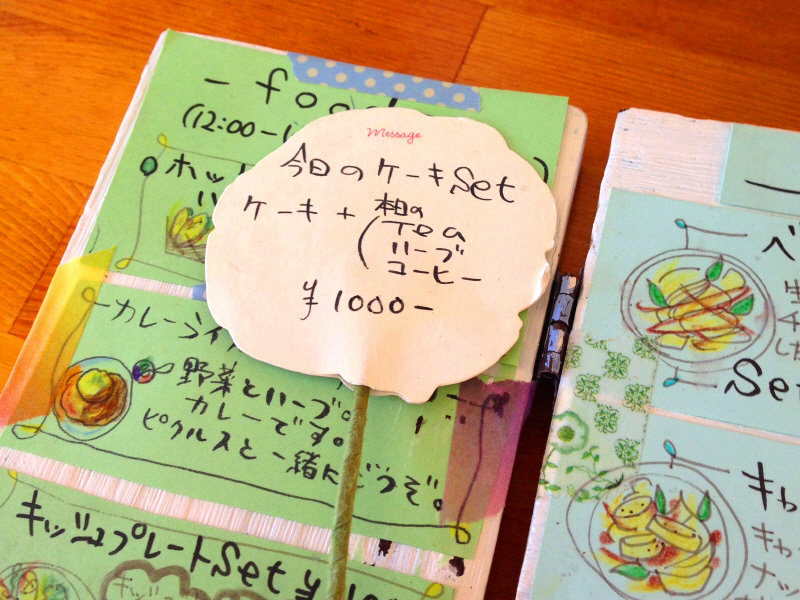 - food
(12:00-
ホット
Message
今日のケーキSet
ケーキ + 本日の
Tea
ハーブ
コーヒー
¥1000-
カレーライ
野菜とハーブの
カレーです。
ピクルスと一緒にどうぞ。
キッズプレートSet ¥
キッズ
ベ
生
チ
し
Set
キャ
キャ
ナッ